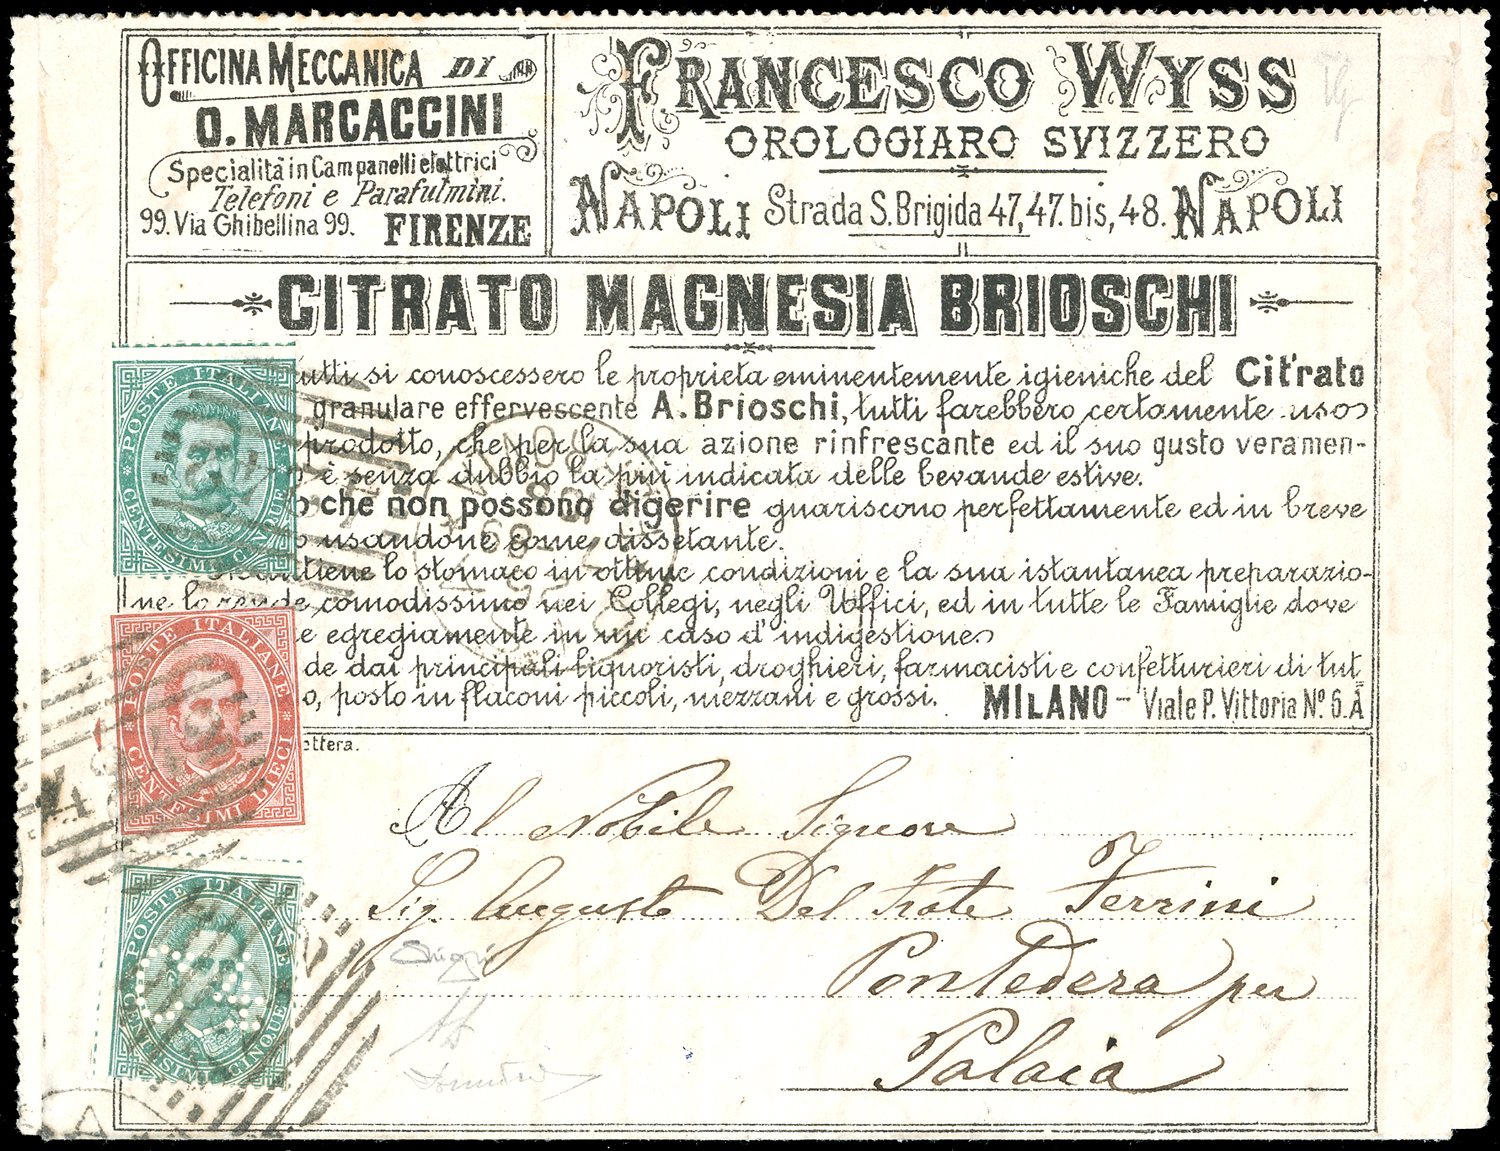 OFFICINA MECCANICA DI
O. MARCACCINI
Specialità in Campanelli elettrici
Telefoni e Parafulmini.
99. Via Ghibellina 99. FIRENZE
FRANCESCO WYSS
OROLOGIARO SVIZZERO
NAPOLI Strada S. Brigida 47, 47. bis, 48. NAPOLI
CITRATO MAGNESIA BRIOSCHI
utti si conoscessero le proprietà eminentemente igieniche del Citrato
granulare effervescente A. Brioschi, tutti farebbero certamente uso
prodotto, che per la sua azione rinfrescante ed il suo gusto veramen-
è senza dubbio la più indicata delle bevande estive.
o che non possono digerire guariscono perfettamente ed in breve
usandone come dissetante.
tiene lo stomaco in ottime condizioni e la sua istantanea preparazio-
ne lo rende comodissimo nei Collegi, negli Uffici, ed in tutte le Famiglie dove
e egregiamente in un caso d'indigestione
de dai principali liquoristi, droghieri, farmacisti e confetturieri di tut
o, posto in flaconi piccoli, mezzani e grossi. MILANO - Viale P. Vittoria N.º 6. A
ettera.
POSTE ITALIANE
CENTESIMI CINQUE
POSTE ITALIANE
CENTESIMI DIECI
POSTE ITALIANE
CENTESIMI CINQUE
Al Nobile Signore
Sig. Augusto Del Frate Ferrini
Pontedera per
Palaia